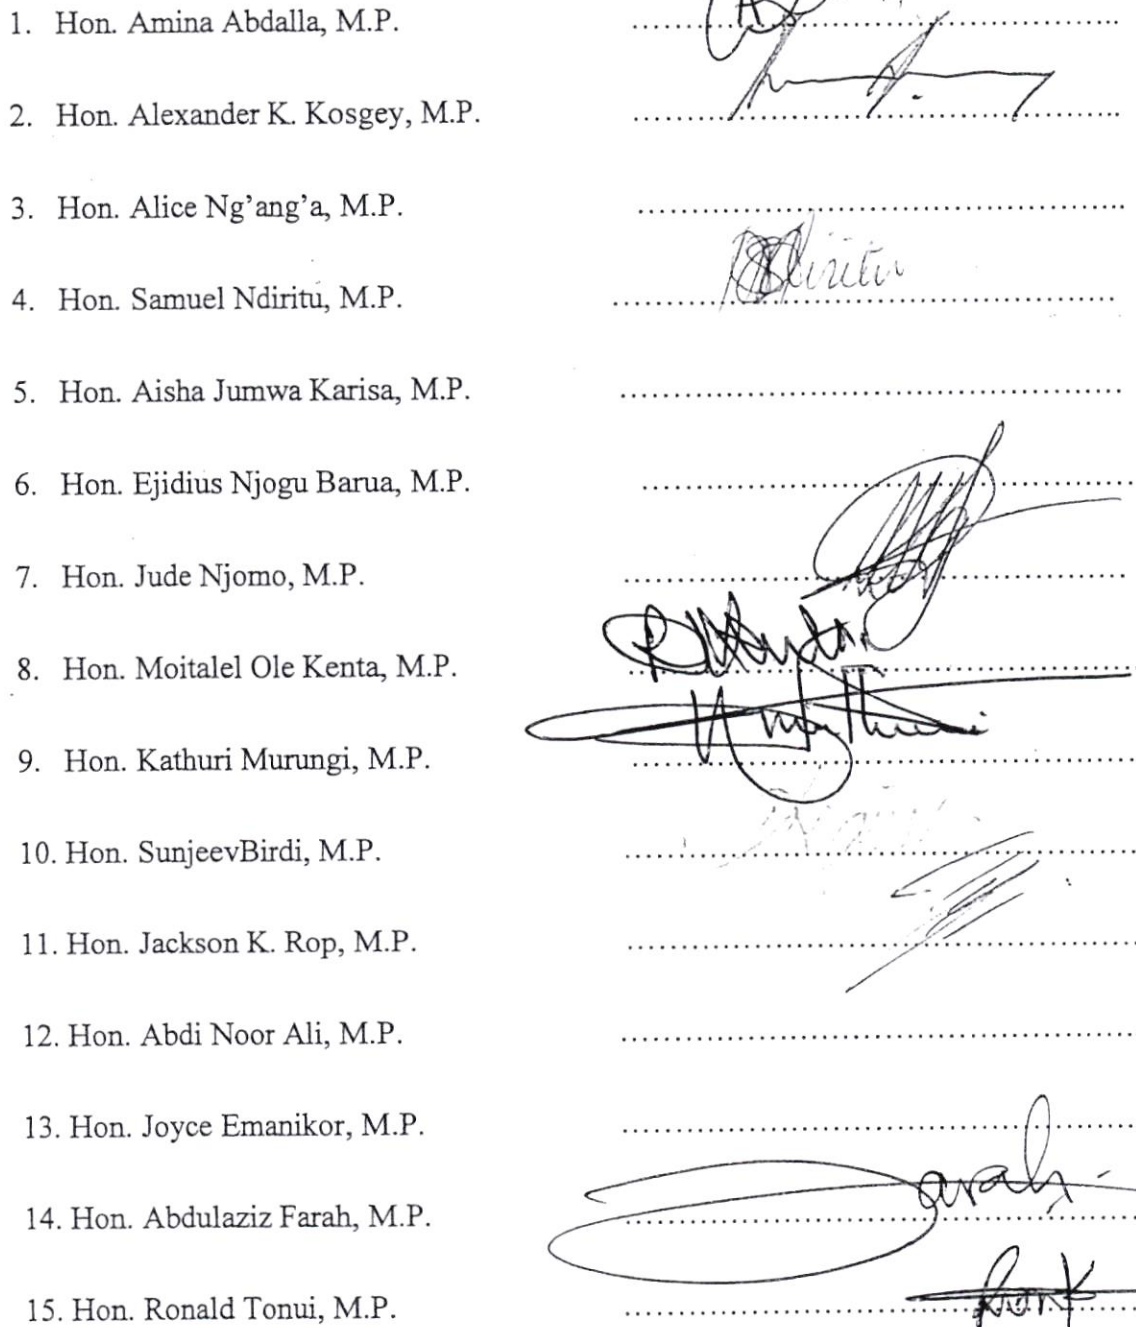 1. Hon. Amina Abdalla, M.P.
2. Hon. Alexander K. Kosgey, M.P.
3. Hon. Alice Ng'ang'a, M.P.
4. Hon. Samuel Ndiritu, M.P.
5. Hon. Aisha Jumwa Karisa, M.P.
6. Hon. Ejidius Njogu Barua, M.P.
7. Hon. Jude Njomo, M.P.
8. Hon. Moitalel Ole Kenta, M.P.
9. Hon. Kathuri Murungi, M.P.
10. Hon. SunjeevBirdi, M.P.
11. Hon. Jackson K. Rop, M.P.
12. Hon. Abdi Noor Ali, M.P.
13. Hon. Joyce Emanikor, M.P.
14. Hon. Abdulaziz Farah, M.P.
15. Hon. Ronald Tonui, M.P.